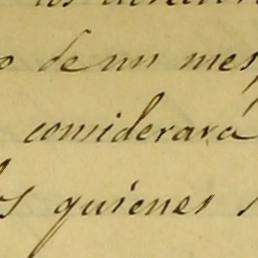 de un mes
considerará
quienes